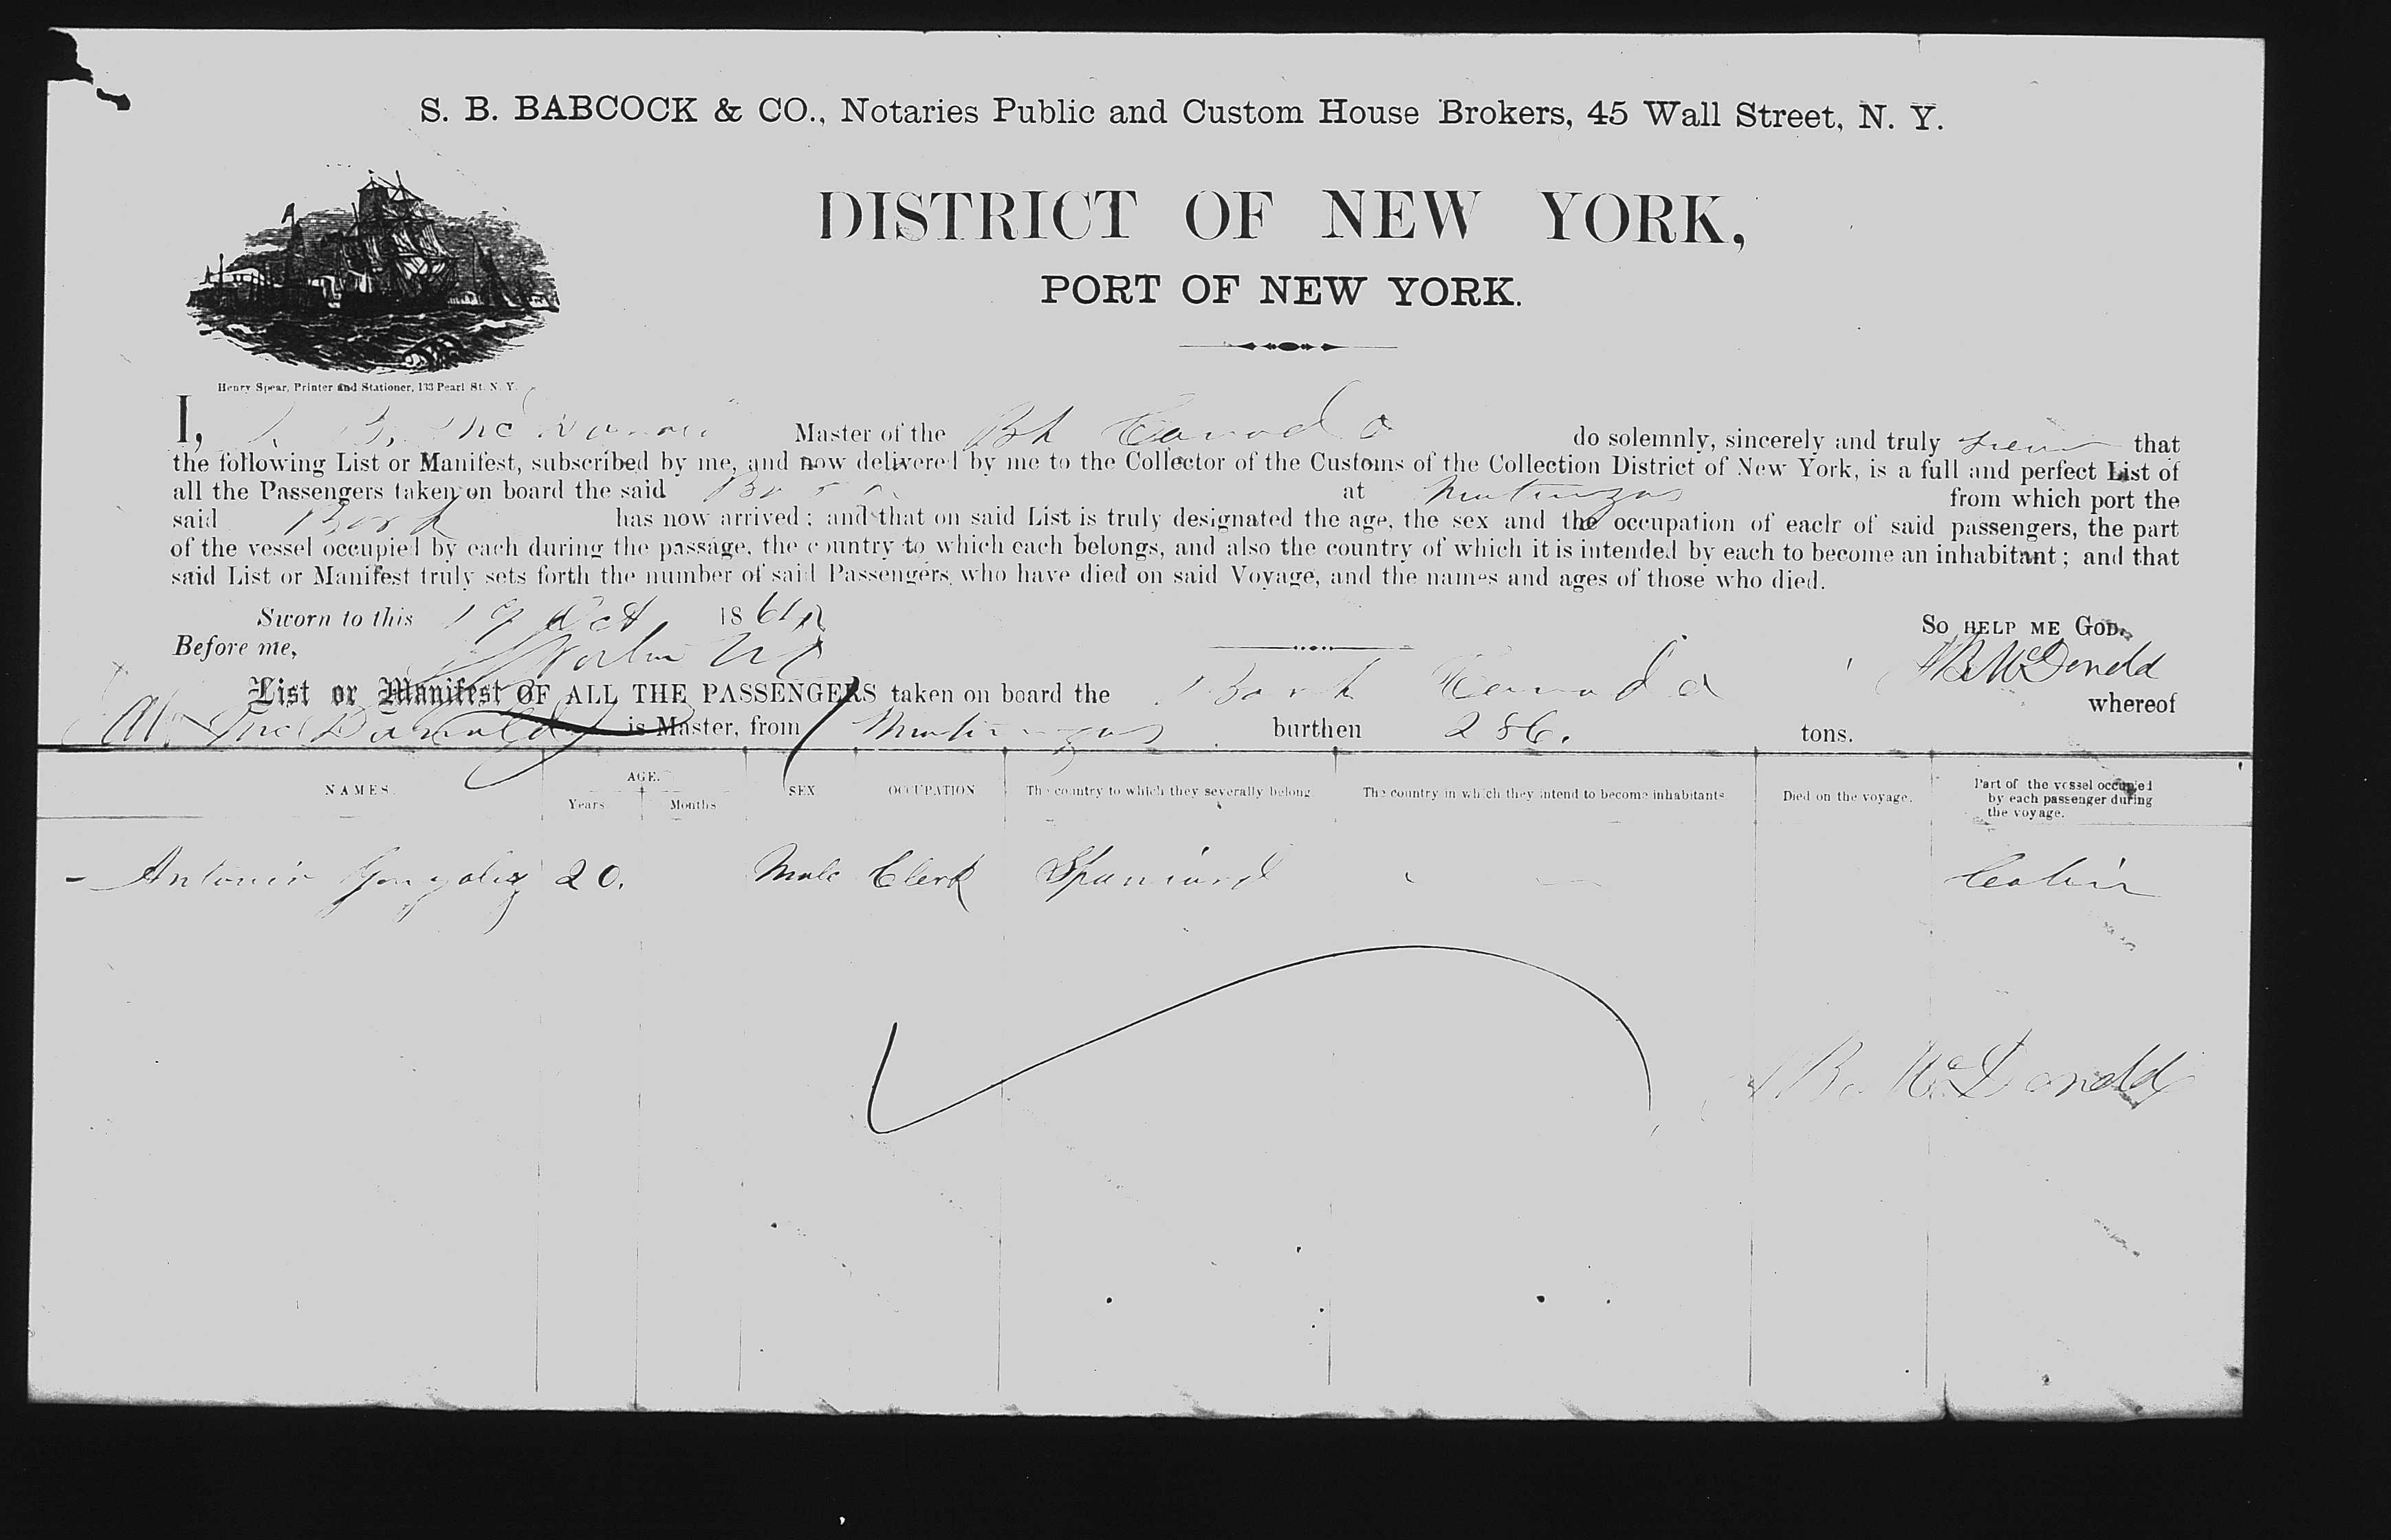 S. B. BABCOCK & CO., Notaries Public and Custom House Brokers, 45 Wall Street, N. Y.
DISTRICT OF NEW YORK,
PORT OF NEW YORK.
Henry Spear, Printer and Stationer, 133 Pearl St. N. Y.
I, B. Mc Master of the Bk Canada do solemnly, sincerely and truly swear that
the following List or Manifest, subscribed by me, and now delivered by me to the Collector of the Customs of the Collection District of New York, is a full and perfect List of
all the Passengers taken on board the said Bark at Matanzas from which port the
said Bark has now arrived; and that on said List is truly designated the age, the sex and the occupation of each of said passengers, the part
of the vessel occupied by each during the passage, the country to which each belongs, and also the country of which it is intended by each to become an inhabitant; and that
said List or Manifest truly sets forth the number of said Passengers, who have died on said Voyage, and the names and ages of those who died.
Sworn to this 19 Oct 186 So HELP ME GOD.
Before me, B McDonald
List or Manifest OF ALL THE PASSENGERS taken on board the Bark Canada whereof
McDonald is Master, from Matanzas burthen 286. tons.
NAMES. AGE. Years Months SEX OCCUPATION The country to which they severally belong The country in which they intend to become inhabitants Died on the voyage. Part of the vessel occupied by each passenger during the voyage.
Antonio Gonzalez 20. Male Clerk Spaniard Cabin
B. McDonald